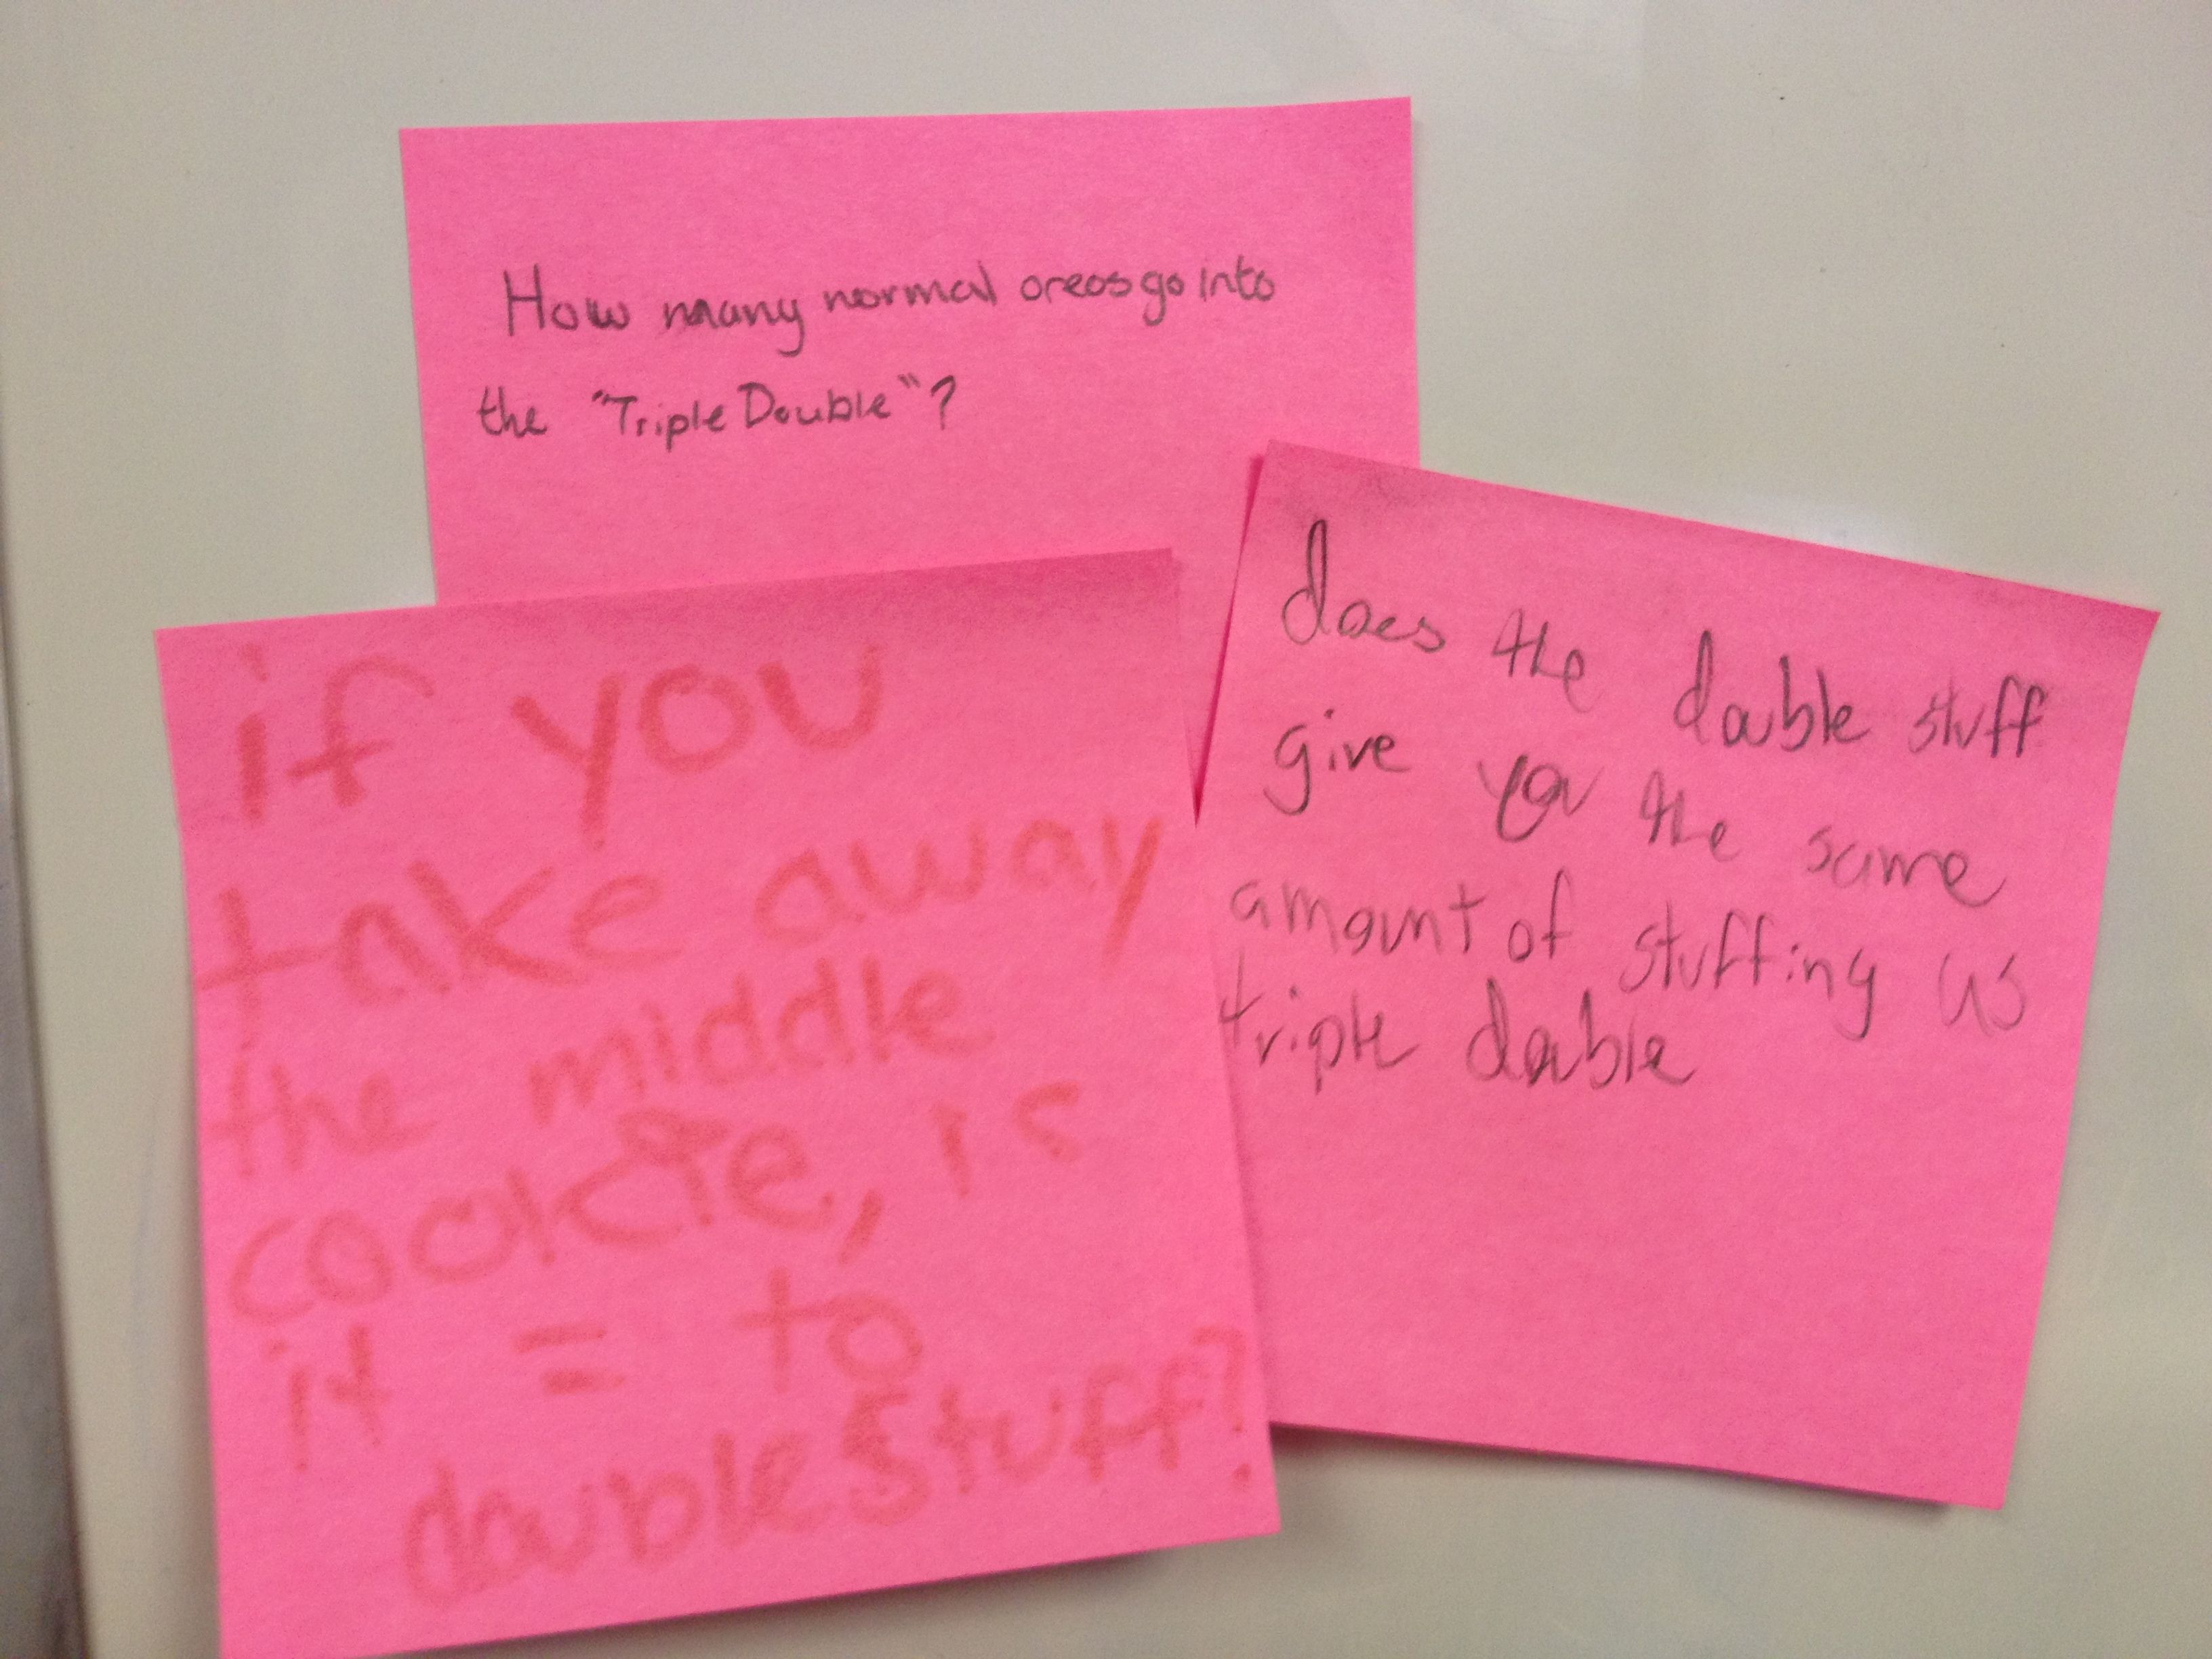 How many normal oreos go into
the "Triple Double"?
if you
take away
the middle
cookie, is
it = to
double stuff?
does the double stuff
give you the same
amount of stuffing as
triple double